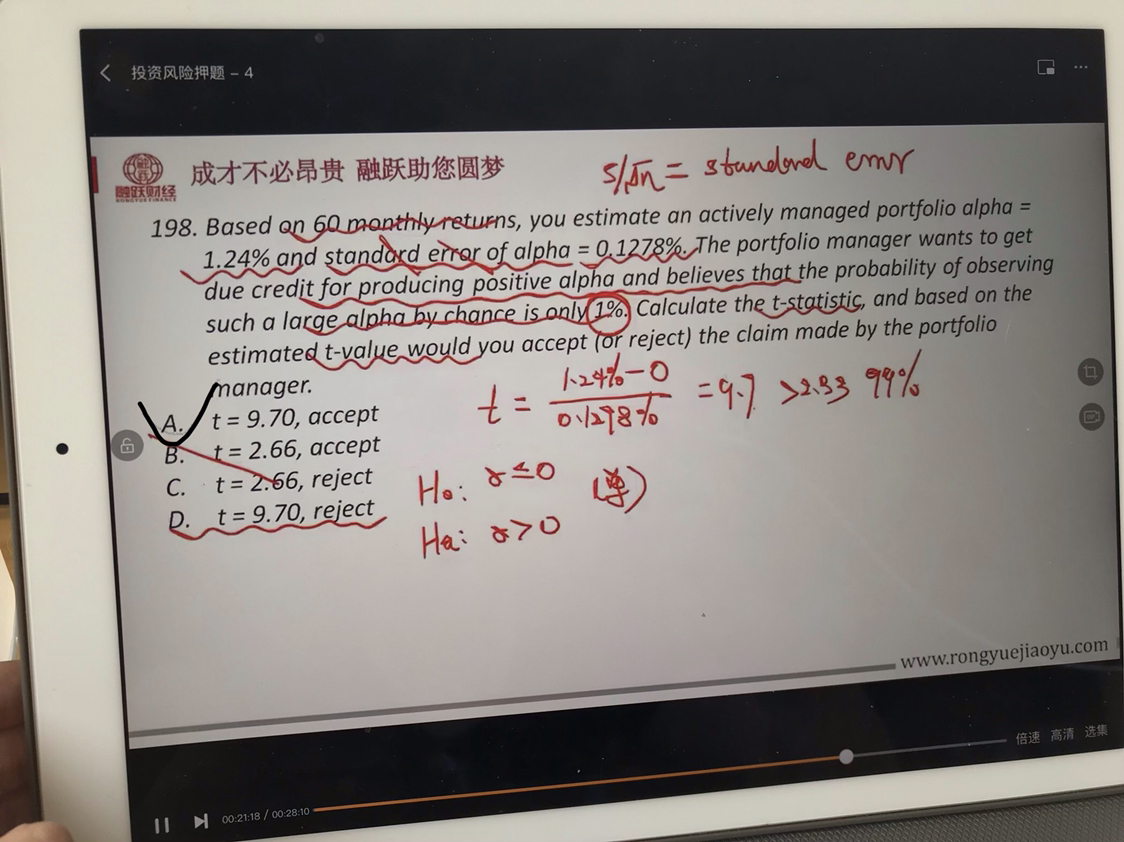 投资风险押题 – 4
成才不必昂贵 融跃助您圆梦
融跃财经
RONGYUE FINANCE
s/√n = standard error
198. Based on 60 monthly returns, you estimate an actively managed portfolio alpha =
1.24% and standard error of alpha = 0.1278%. The portfolio manager wants to get
due credit for producing positive alpha and believes that the probability of observing
such a large alpha by chance is only 1%. Calculate the t-statistic, and based on the
estimated t-value would you accept (or reject) the claim made by the portfolio
manager.
A. t = 9.70, accept
B. t = 2.66, accept
C. t = 2.66, reject
D. t = 9.70, reject
t = 1.24% - 0 / 0.1278% = 9.7 > 2.33 99%
H₀: α ≤ 0 (单)
Ha: α > 0
www.rongyuejiaoyu.com
倍速 高清 选集
00:21:18 / 00:28:10